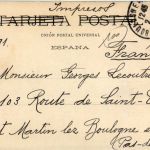 Impresos
TARJETA POSTAL
UNIÓN POSTAL UNIVERSAL
ESPAÑA
Monsieur Georges Lecoutre
103 Route de Saint-
St Martin lez Boulogne
Pas-de